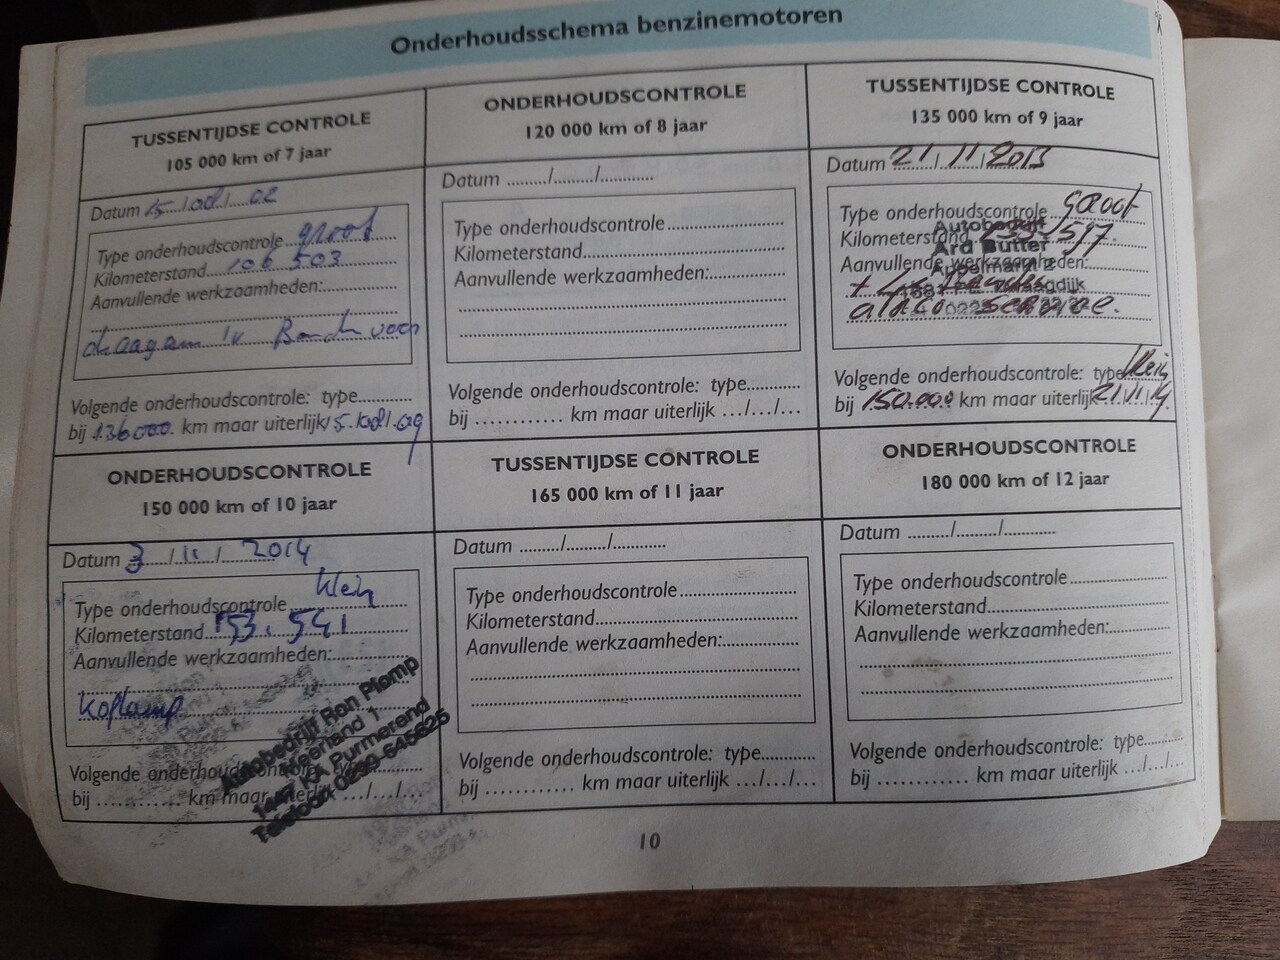 Onderhoudsschema benzinemotoren
TUSSENTIJDSE CONTROLE
105 000 km of 7 jaar
Datum 15./08/....02
Type onderhoudscontrole groot
Kilometerstand 106 503
Aanvullende werkzaamheden:
Volgende onderhoudscontrole: type............
bij 136000. km maar uiterlijk 15./08/.09
ONDERHOUDSCONTROLE
120 000 km of 8 jaar
Datum ........./........./............
Type onderhoudscontrole........................
Kilometerstand........................
Aanvullende werkzaamheden:..............
Volgende onderhoudscontrole: type............
bij ............ km maar uiterlijk .../.../...
TUSSENTIJDSE CONTROLE
135 000 km of 9 jaar
Datum 21./11/2013
Type onderhoudscontrole groot
Kilometerstand
Aanvullende werkzaamheden:
Autobedrijf
Ard Butter
Appelmarkt 2
Volgende onderhoudscontrole: type Klein
bij 150.000 km maar uiterlijk 21/11/14
ONDERHOUDSCONTROLE
150 000 km of 10 jaar
Datum 3 /11/ 2014
Type onderhoudscontrole Klein
Kilometerstand 153.541
Aanvullende werkzaamheden:
Koplamp
Volgende onderhoudscontrole: type............
bij ............ km maar uiterlijk .../.../...
Autobedrijf Ron Plomp
Neerland 1
Purmerend
Telefoon 0299-645625
TUSSENTIJDSE CONTROLE
165 000 km of 11 jaar
Datum ........./........./............
Type onderhoudscontrole........................
Kilometerstand........................
Aanvullende werkzaamheden:..............
Volgende onderhoudscontrole: type............
bij ............ km maar uiterlijk .../.../...
ONDERHOUDSCONTROLE
180 000 km of 12 jaar
Datum ........./........./............
Type onderhoudscontrole........................
Kilometerstand........................
Aanvullende werkzaamheden:..............
Volgende onderhoudscontrole: type............
bij ............ km maar uiterlijk .../.../...
10